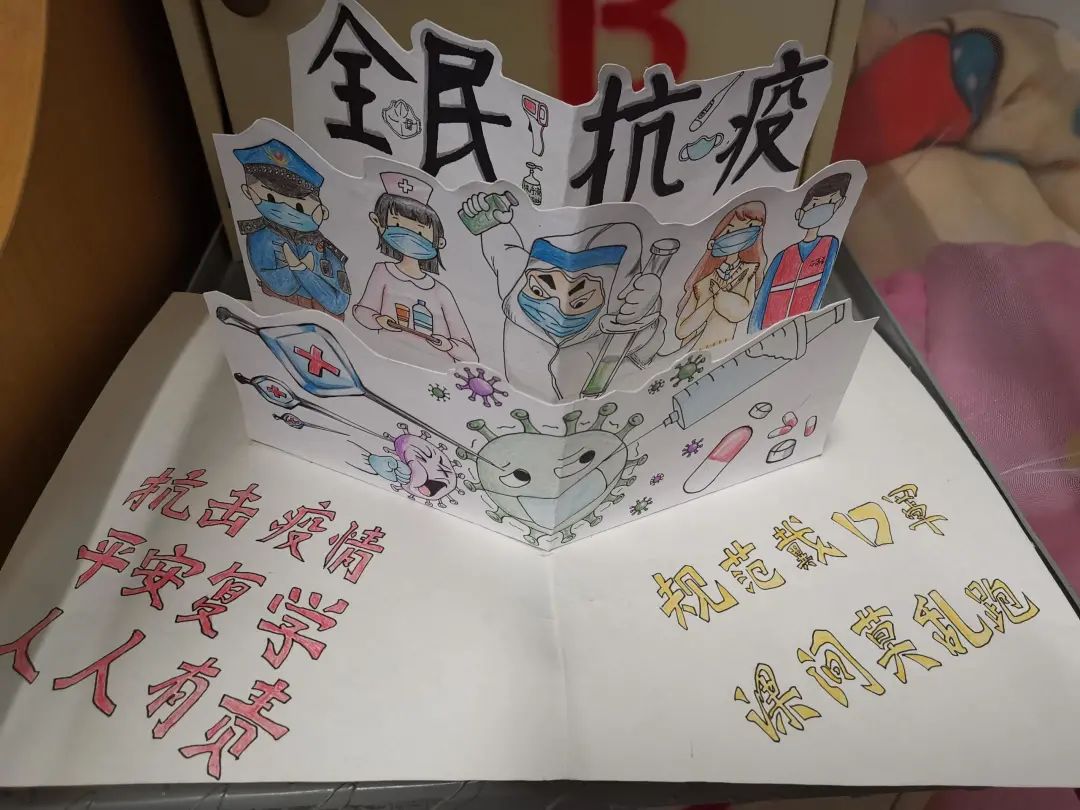 B
全民抗疫
抗击疫情
平安复学
人人有责
规范戴口罩
课间莫乱跑